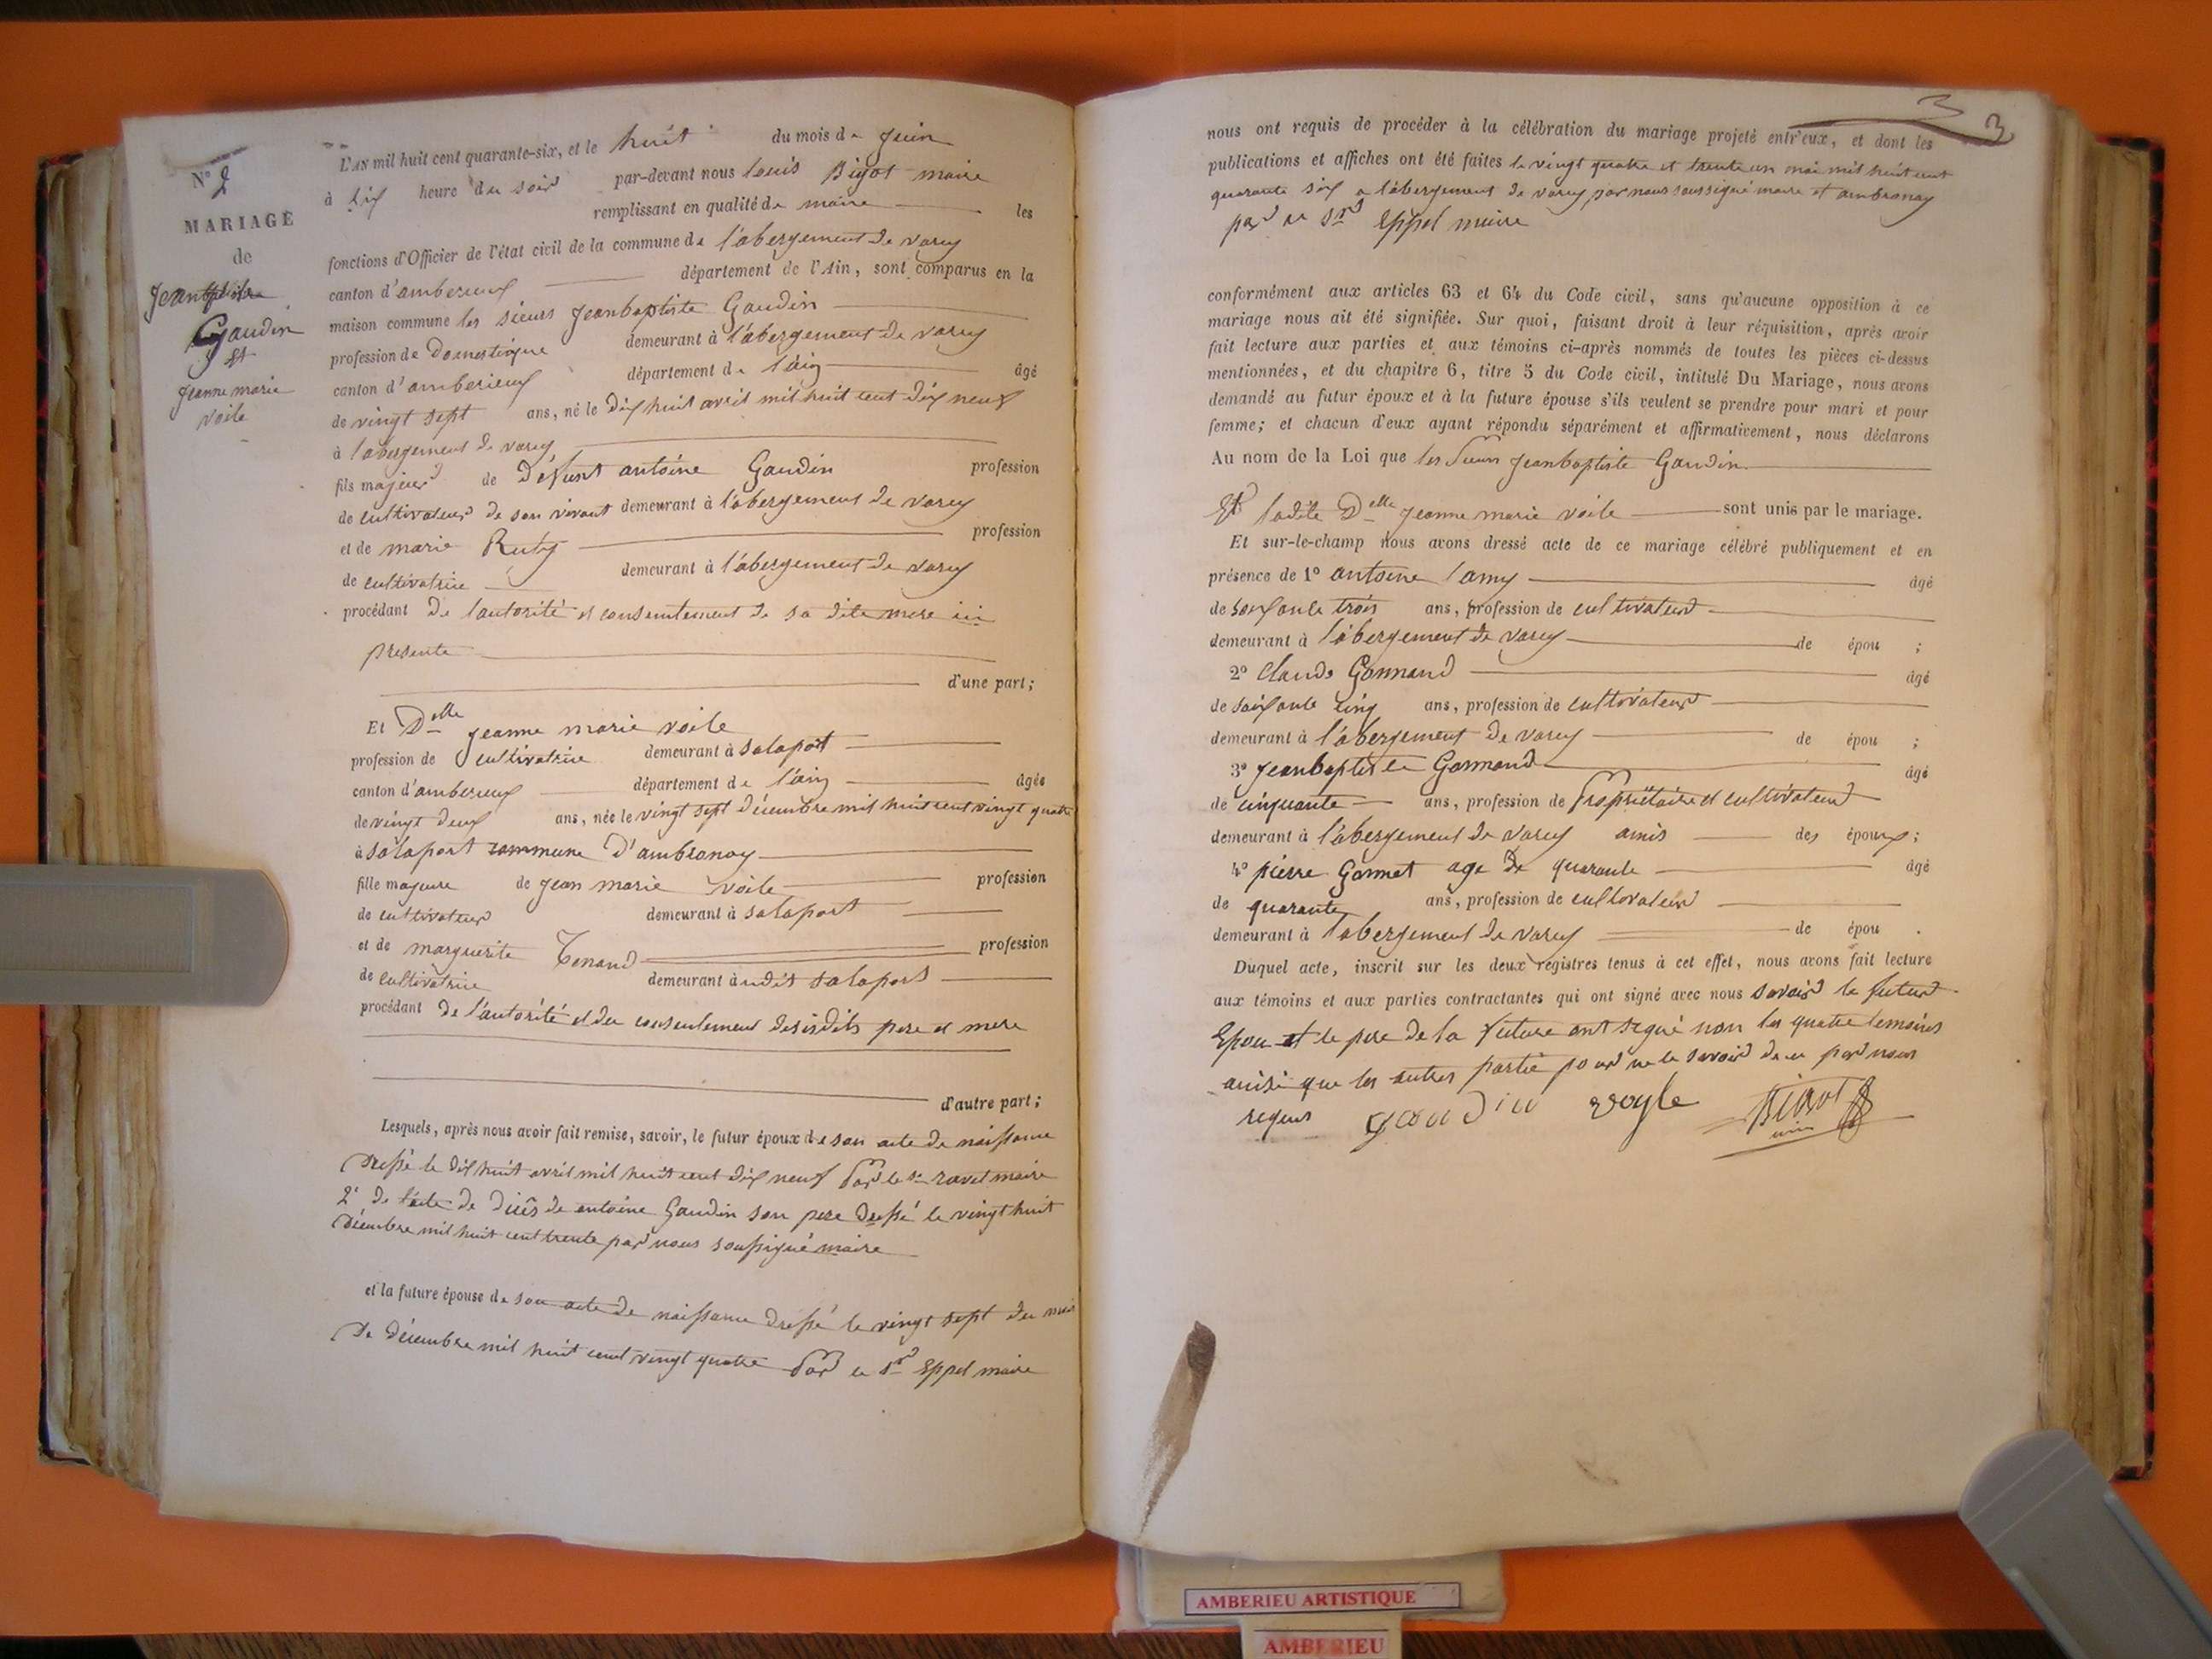 N° 2
MARIAGE
de
Jeanbaptiste
Gaudin
et
Jeanne marie
voile
L'AN mil huit cent quarante-six, et le huit du mois de Juin
à six heure du soir par-devant nous Louis Bigot maire
remplissant en qualité de maire les
fonctions d'Officier de l'état civil de la commune de l'abergement de varey
canton d'amberieux département de l'Ain, sont comparus en la
maison commune les sieurs Jeanbaptiste Gaudin
profession de Domestique demeurant à l'abergement de varey
canton d'amberieux département de l'ain âgé
de vingt sept ans, né le dix huit avril mil huit cent dix neuf
à l'abergement de varey
fils majeur de défunt antoine Gaudin profession
de cultivateur de son vivant demeurant à l'abergement de varey
et de marie profession
de cultivatrice demeurant à l'abergement de varey
procédant de l'autorité et consentement de sa dite mere ici
présente
d'une part;
Et Delle Jeanne marie voile
profession de cultivatrice demeurant à salaport
canton d'amberieux département de l'ain âgée
de vingt deux ans, née le vingt sept décembre mil huit cent vingt quatre
à salaport commune d'ambronay
fille majeure de Jean marie voile profession
de cultivateur demeurant à salaport
et de marguerite Tenand profession
de cultivatrice demeurant à udit salaport
procédant de l'autorité et du consentement desisdits pere et mere
d'autre part;
Lesquels, après nous avoir fait remise, savoir, le futur époux de son acte de naissance
dressé le dix huit avril mil huit cent dix neuf par le sr ravet maire
2° de l'acte de décès de antoine Gaudin son pere dressé le vingt huit
décembre mil huit cent trente par nous soussigné maire
et la future épouse de son acte de naissance dressé le vingt sept du mois
de décembre mil huit cent vingt quatre par le sr Eppel maire
3 3
nous ont requis de procéder à la célébration du mariage projeté entr'eux, et dont les
publications et affiches ont été faites le vingt quatre et trente un mai mil huit cent
quarante six a l'abergement de varey par nous soussigné maire et ambronay
par le sr Eppel maire
conformément aux articles 63 et 64 du Code civil, sans qu'aucune opposition à ce
mariage nous ait été signifiée. Sur quoi, faisant droit à leur réquisition, après avoir
fait lecture aux parties et aux témoins ci-après nommés de toutes les pièces ci-dessus
mentionnées, et du chapitre 6, titre 5 du Code civil, intitulé Du Mariage, nous avons
demandé au futur époux et à la future épouse s'ils veulent se prendre pour mari et pour
femme; et chacun d'eux ayant répondu séparément et affirmativement, nous déclarons
Au nom de la Loi que les sieurs Jeanbaptiste Gaudin
Et ladite Delle Jeanne marie voile sont unis par le mariage.
Et sur-le-champ nous avons dressé acte de ce mariage célébré publiquement et en
présence de 1° antoine lamy âgé
de soixante trois ans, profession de cultivateur
demeurant à l'abergement de varey de épou ;
2° Claude Gormand âgé
de soixante cinq ans, profession de cultivateur
demeurant à l'abergement de varey de épou ;
3° Jeanbaptiste Gormand âgé
de cinquante ans, profession de Propriétaire et cultivateur
demeurant à l'abergement de varey amis des époux;
4° pierre Gonnet age de quarante âgé
de quarante ans, profession de cultivateur
demeurant à l'abergement de varey de épou .
Duquel acte, inscrit sur les deux registres tenus à cet effet, nous avons fait lecture
aux témoins et aux parties contractantes qui ont signé avec nous savoir le futur
Epou et le pere de la future ont signé non les quatre temoins
ainsi que les autres partie pour ne le savoir de ce par nous
requis gaudin voyle Bigot
AMBERIEU ARTISTIQUE
AMBERIEU